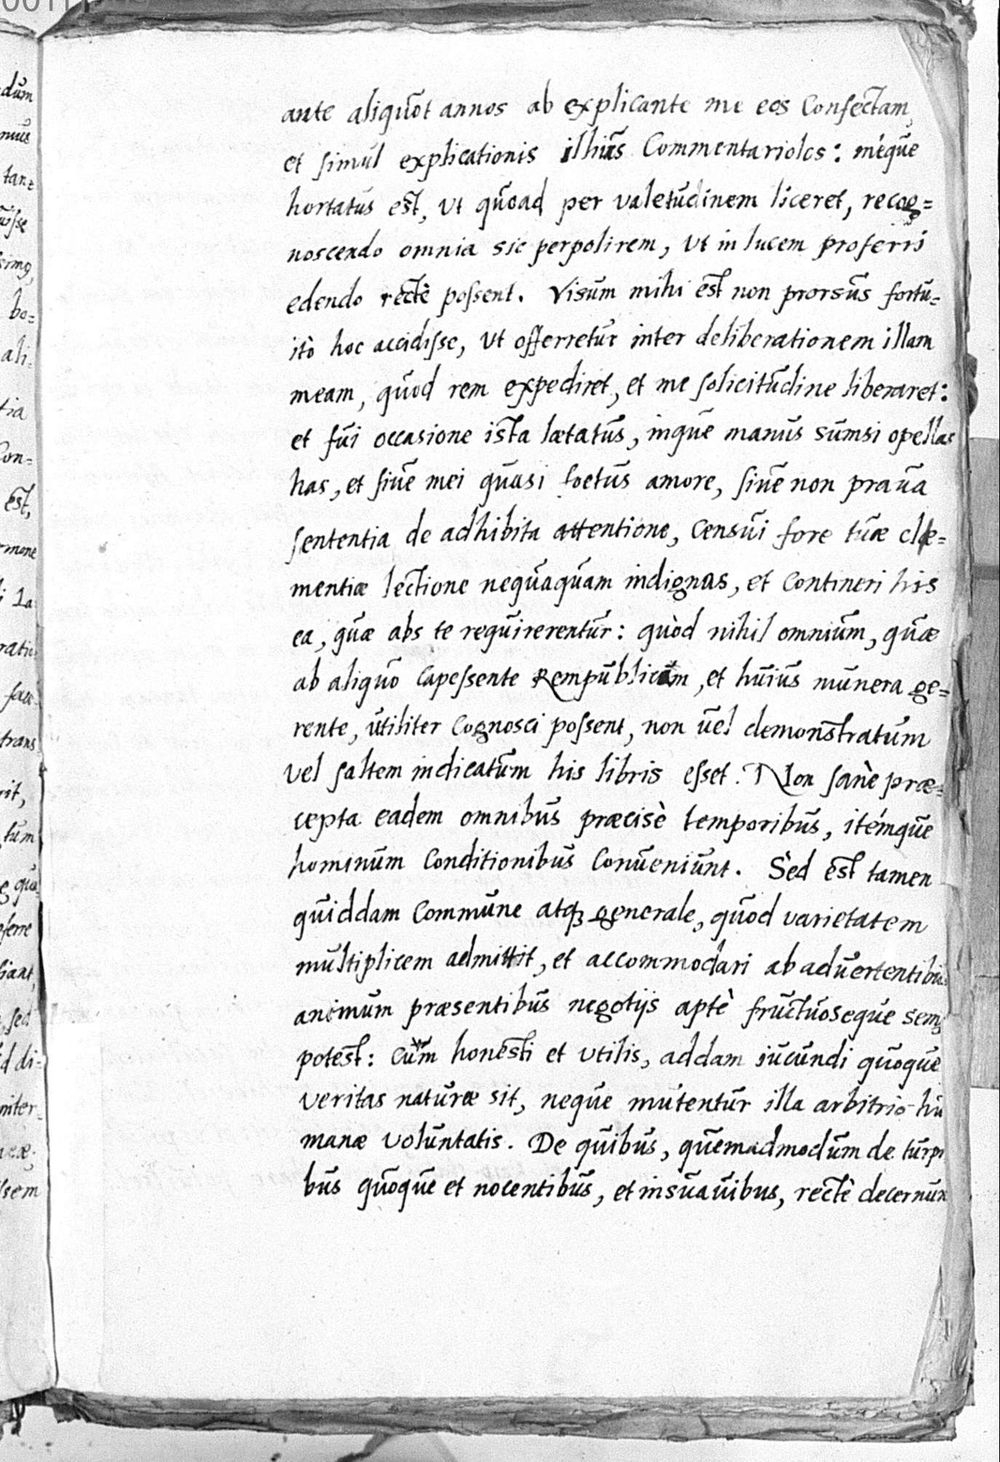 ante aliquot annos ab explicante me eos Confectam,
et simul explicationis illius Commentariolos: méque
hortatus est, ut quoad per valetudinem liceret, recog=
noscendo omnia sic perpolirem, ut in lucem proferri
edendo rectè possent. Visum mihi est non prorsus fortu=
itò hoc accidisse, Ut offerretur inter deliberationem illam
meam, quod rem expediret, et me solicitudine liberaret:
et fui occasione ista lætatus, inque manus sumsi opellas
has, et siue mei quasi foetus amore, siue non praua
sententia de adhibita attentione, Censui fore tuæ cle=
mentiæ lectione nequaquam indignas, et Contineri his
ea, quæ abs te requirerentur: quòd nihil omnium, quæ
ab aliquo Capessente Rempublicam, et huius munera ge=
rente, utiliter Cognosci possent, non uel demonstratum
vel saltem indicatum his libris esset. Non sanè præ=
cepta eadem omnibus præcisè temporibus, itémque
hominum Conditionibus Conueniunt. Sèd est tamen
quiddam Commune atq; generale, quod varietatem
multiplicem admittit, et accommodari ab aduertentibus
animum præsentibus negotijs aptè fructuoseque sem
potest: Cum honesti et utilis, addam iucundi quoque
veritas naturæ sit, neque mutentur illa arbitrio hu
manæ voluntatis. De quibus, quemadmodum de turpi
bus quoque et nocentibus, et insuauibus, rectè decernun